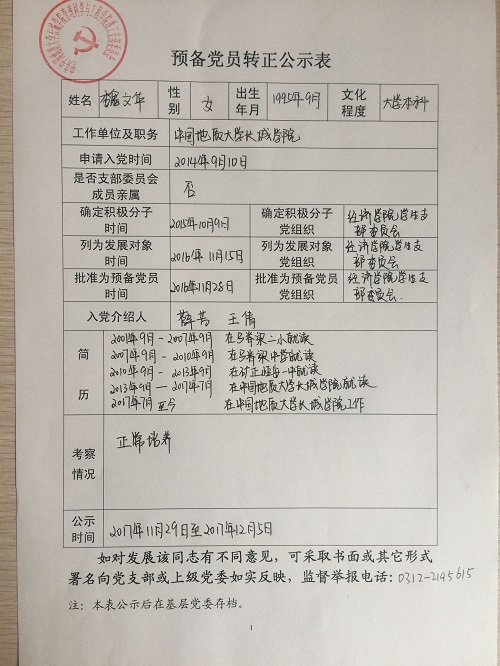 预备党员转正公示表
姓名 魏文华 性别 女 出生年月 1995年9月 文化程度 大学本科
工作单位及职务 中国地质大学长城学院
申请入党时间 2014年9月10日
是否支部委员会成员亲属 否
确定积极分子时间 2015年10月9日 确定积极分子党组织 经济学院学生支部委员会
列为发展对象时间 2016年11月15日 列为发展对象党组织 经济学院学生支部委员会
批准为预备党员时间 2016年11月28日 批准为预备党员党组织 经济学院学生支部委员会
入党介绍人 薛芳 王倩
简历
2001年9月-2007年9月 在马脊梁二小就读
2007年9月-2010年9月 在马脊梁中学就读
2010年9月-2013年9月 在矿一中就读
2013年9月—2017年7月 在中国地质大学长城学院就读
2017年7月至今 在中国地质大学长城学院工作
考察情况 正常培养
公示时间 2017年11月29日至2017年12月5日
如对发展该同志有不同意见，可采取书面或其它形式
署名向党支部或上级党委如实反映，监督举报电话：0312-2145615
注：本表公示后在基层党委存档。
1